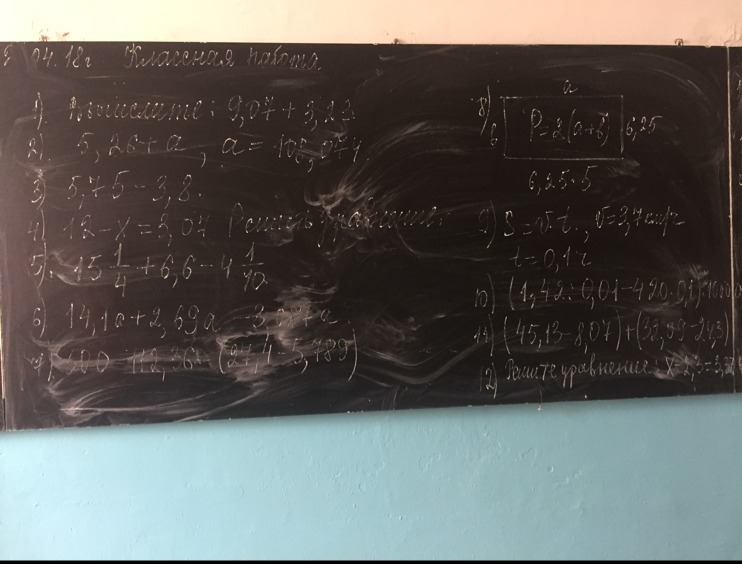 04.18г Классная работа
1) Вычислите: 9,07 + 3,23
2) 5,26 + a, a = 105,074
3) 5,75 - 3,8.
4) 12 - x = 3,07 Решить уравнение.
5) 15 1/4 + 6,6 - 4 1/10
6) 14,1a + 2,69a
7) 600 - 112,36 - (27,4 - 5,789)
8)
a
b P = 2(a+b) 6,25
6,25 · 5
9) S = v·t., v = 3,7
t = 0,1 ч
10) (1,42 : 0,01 - 420 · 0,1) · 1000
11) (45,13 - 8,07) + (32,99 - 24,3)
12) Решите уравнение: